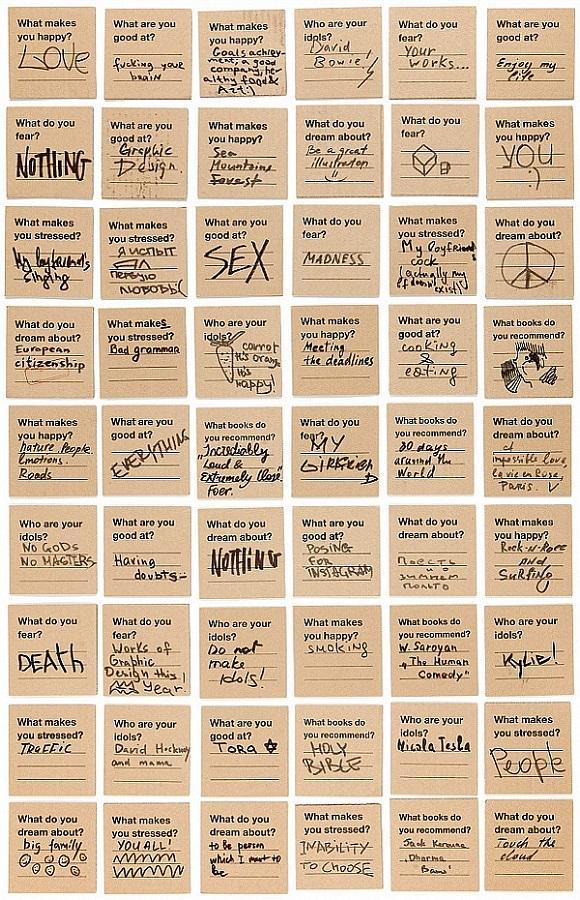 What makes
you happy?
LOVE
What are you
good at?
fucking your
brain
What makes
you happy?
Goals achiev-
ment, a good
company, he-
althy food &
Art:)
Who are your
idols?
David
Bowie!
What do you
fear?
Your
works...
What are you
good at?
Enjoy my
life
What do you
fear?
NOTHING
What are you
good at?
Graphic
Design
What makes
you happy?
Sea
Mountains
Forest
What do you
dream about?
Be a great
illustrator
What do you
fear?
What makes
you happy?
YOU
:)
What makes
you stressed?
My boyfriend's
singing
What makes
you stressed?
Я ИСПЫТ
первую
любовь(
What are you
good at?
SEX
What do you
fear?
MADNESS
What makes
you stressed?
My boyfriend's
cock
(actually my
b.f. doesn't
exist)
What do you
dream about?
What do you
dream about?
European
citizenship
What makes
you stressed?
Bad grammar
Who are your
idols?
carrot
It's orange
It's
happy!
What makes
you happy?
Meeting
the deadlines
What are you
good at?
cooking
&
eating
What books do
you recommend?
What makes
you happy?
nature People
Emotions.
Roads
What are you
good at?
EVERYTHING
What books do
you recommend?
"Incrediably
Loud &
Extremely Close"
Foer.
What do you
fear?
MY
GIRLFRIEND
What books do
you recommend?
80 days
around the
World
What do you
dream about?
of
impossible love,
la vie en Rose,
Paris.
Who are your
idols?
NO GODS
NO MASTERS
What are you
good at?
Having
doubts:-
What do you
dream about?
NOTHING
What are you
good at?
POSING
FOR
INSTAGRAM
What do you
dream about?
Поесть
в зимнем
пальто
What makes
you happy?
Rock-n-Rope
AND
SURFING
What do you
fear?
DEATH
What do you
fear?
Works of
Graphic
Design this
year.
Who are your
idols?
Do not
make
idols!
What makes
you happy?
SMOKING
What books do
you recommend?
W. Saroyan
"The Human
Comedy"
Who are your
idols?
Kylie!
What makes
you stressed?
TRAFFIC
Who are your
idols?
David Hockney
and mama
What are you
good at?
TORA
What books do
you recommend?
HOLY
BIBLE
Who are your
idols?
Nicola Tesla
What makes
you stressed?
People
What do you
dream about?
big family
What makes
you stressed?
YOU ALL!
What do you
dream about?
to be person
which I want to
be
What makes
you stressed?
INABILITY
TO CHOOSE
What books do
you recommend?
Jack Kerouac
"Dharma
Bums"
What do you
dream about?
Touch the
cloud